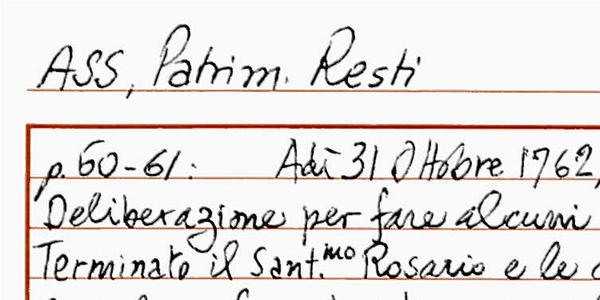 ASS, Patrim. Resti
p. 60-61: Adì 31 Ottobre 1762,
Deliberazione per fare alcuni
Terminato il Sant.mo Rosario e le